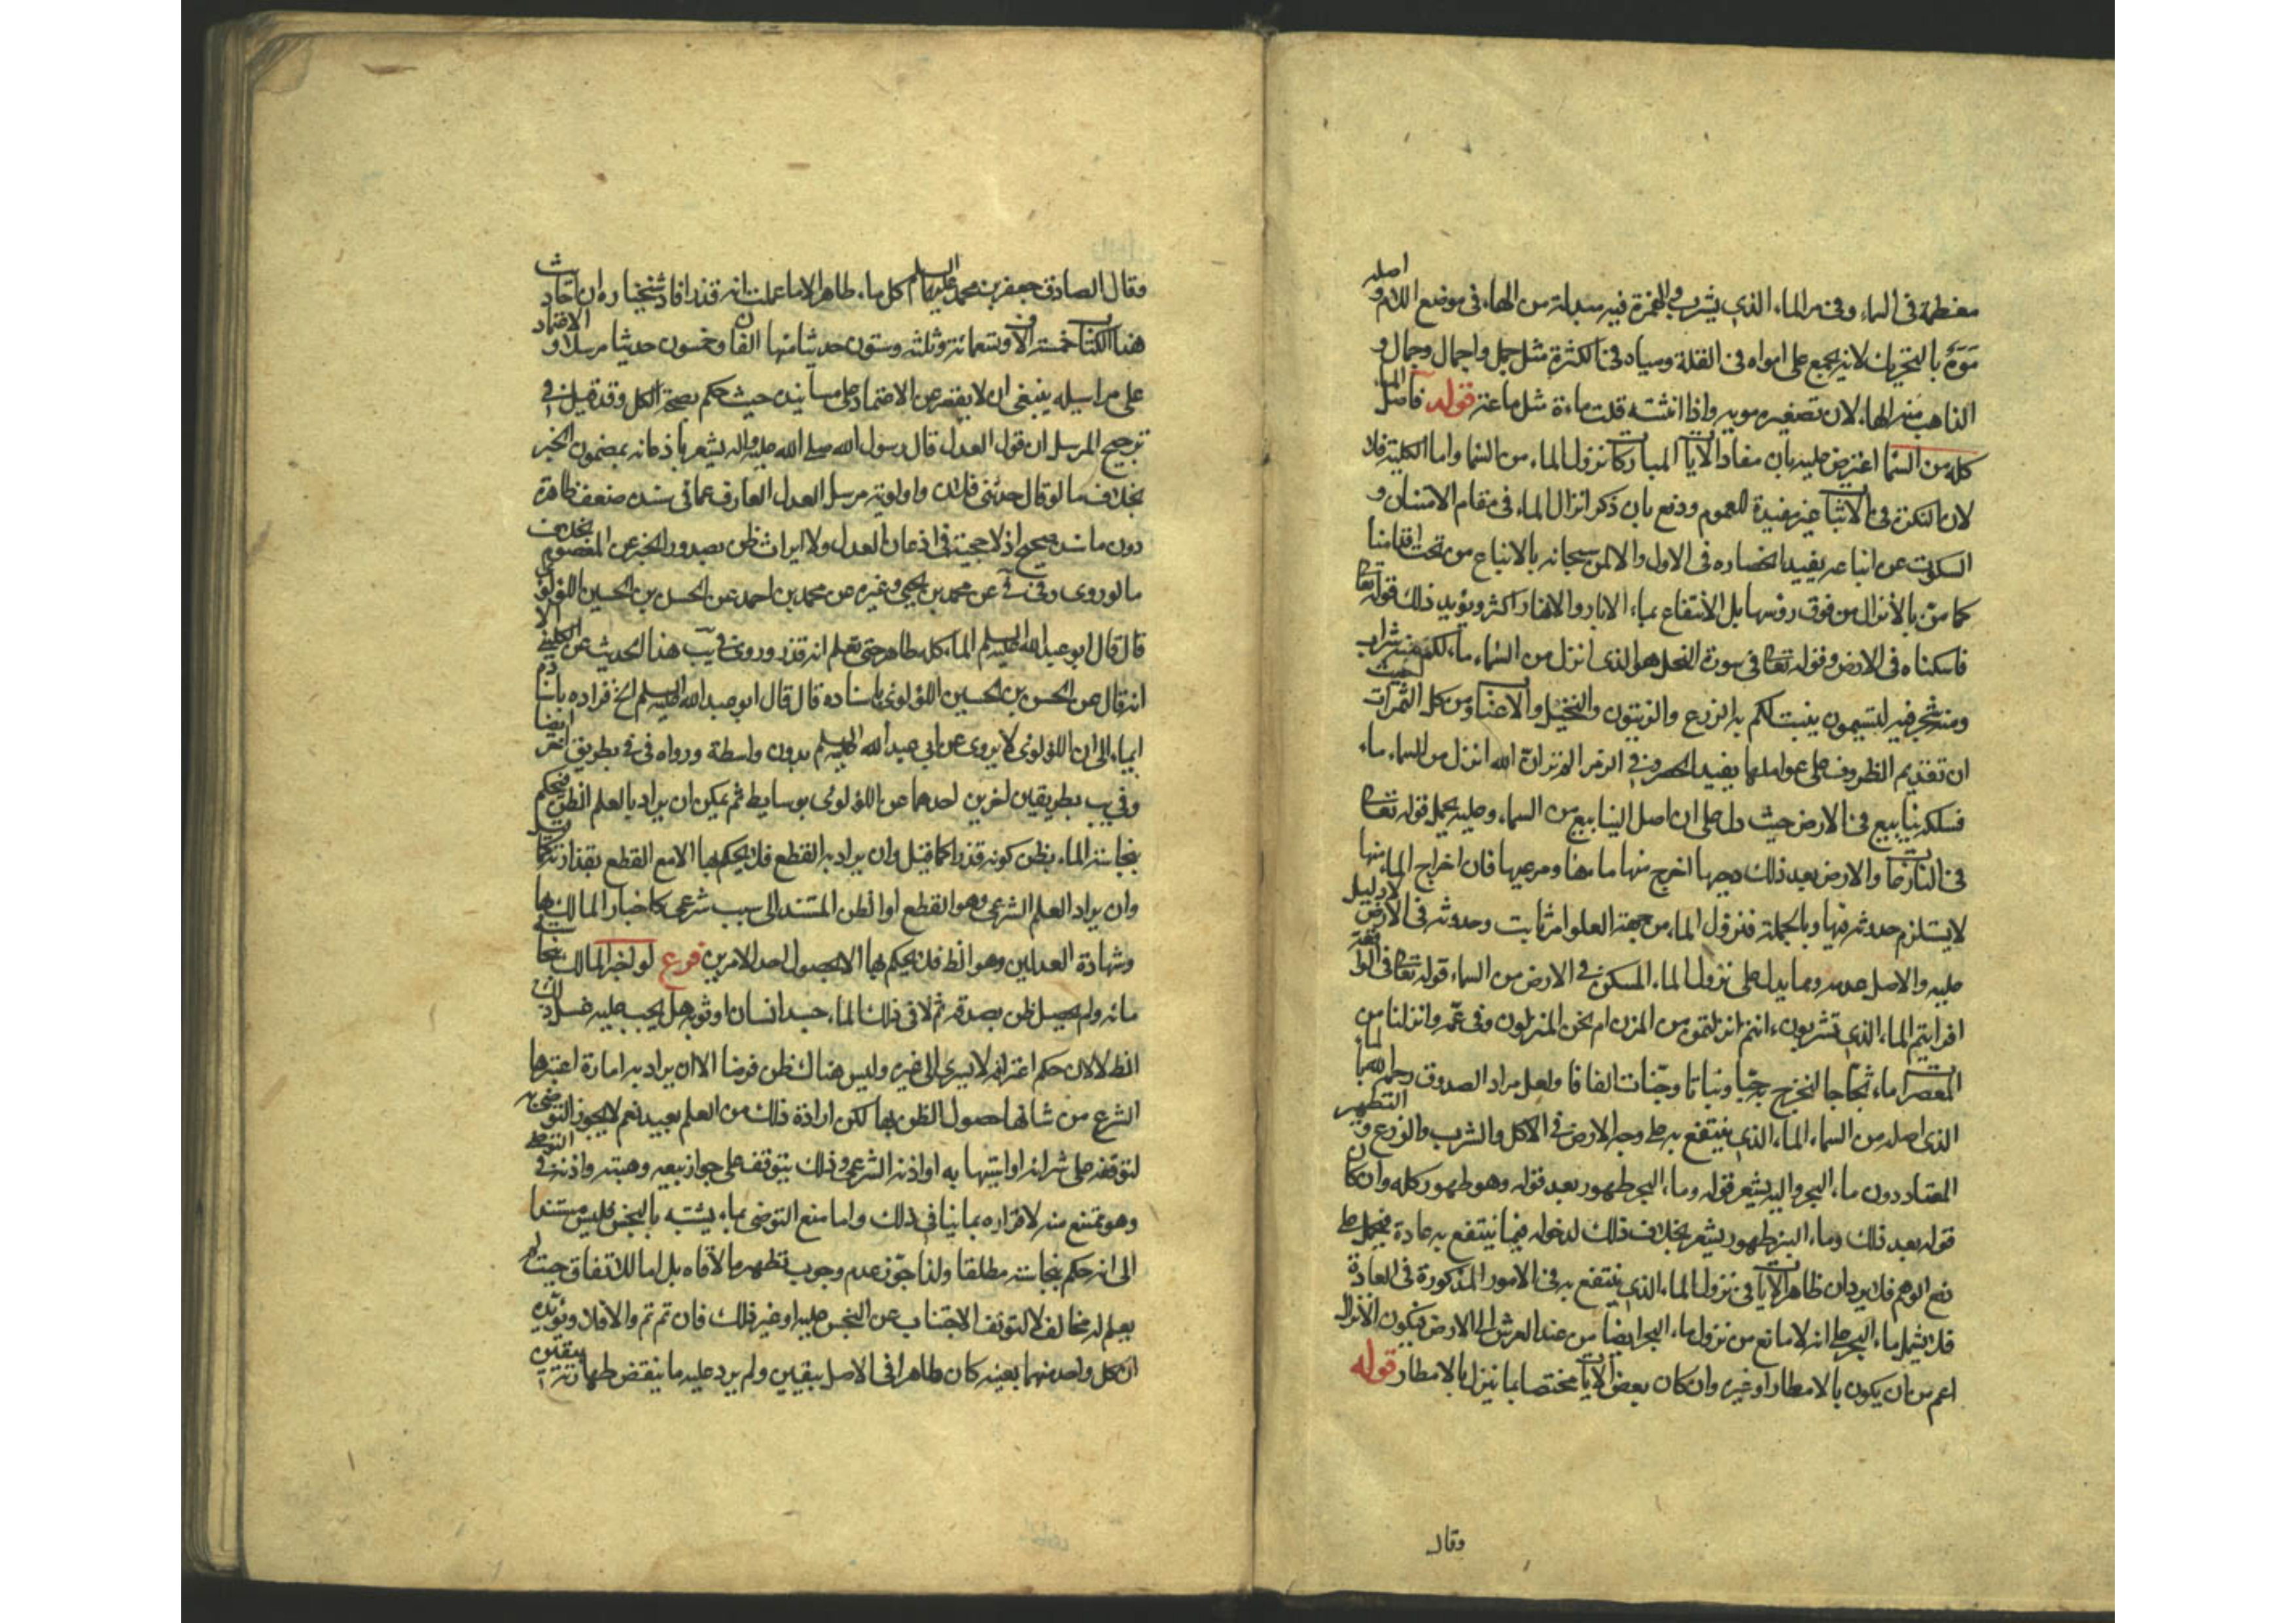 مغطمة في الماء وفي مر الماء الذي يشرب والهمزة فيه مبدلة من الهاء في موضع اللام و اصله
مَوَهٌ بالتحريك لانه يجمع على امواه في القلة ومياه في الكثرة مثل جمل واجمال وجمال و
الذاهب منه الهاء لان تصغيره مويه واذا انثته قلت ماءة مثل ماعة قوله فاصل الماء
كله من السماء اعترض عليه بان مفاد الايات المباركات نزول الماء من السماء واما الكلية فلا
لان النكرة في الاثبات غير مفيدة للعموم ودفع بان ذكر انزال الماء في مقام الامتنان و
السكوت عن انباعه يفيد انحصاره في الاول والا لمن سبحانه بالانباع من تحت اقدامنا
كما من بالانزال من فوق رؤسنا بل الانتفاع بماء الابار والانهار اكثر ويؤيد ذلك قوله تعالى
فاسكناه في الارض وقوله تعالى في سورة النحل هو الذي انزل من السماء ماء لكم منه شراب
ومنه شجر فيه تسيمون ينبت لكم به الزرع والزيتون والنخيل والاعناب ومن كل الثمرات حيث
ان تقديم الظروف على عواملها يفيد الحصر وفي الزمر الم تر ان الله انزل من السماء ماء
فسلكه ينابيع في الارض حيث دل على ان اصل الينابيع من السماء وعليه يحمل قوله تعالى
في النازعات والارض بعد ذلك دحيها اخرج منها ماءها ومرعيها فان اخراج الماء منها
لا يستلزم حدوثه فيها وبالجملة فنزول الماء من جهة العلو امر ثابت وحدوثه في الارض لا دليل
عليه والاصل عدمه ومما يدل على نزول الماء المسكن في الارض من السماء قوله تعالى في الواقعة
افرايتم الماء الذي تشربون ءانتم انزلتموه من المزن ام نحن المنزلون وفي عم وانزلنا من
المعصرات ماء ثجاجا لنخرج به حبا ونباتا وجنات الفافا ولعل مراد الصدوق رحمه الله بالماء
الذي اصله من السماء الماء الذي ينتفع به على وجه الارض في الاكل والشرب والزرع و التطهير
المعتاد دون ماء البحر واليه يشعر قوله وماء البحر طهور بعد قوله وهو طهور كله وان كان
قوله بعد ذلك وماء البئر طهور يشعر بخلاف ذلك لدخوله فيما ينتفع به عادة فيحمل على
دفع الوهم فلا يرد ان ظاهر الايات في نزول الماء الذي ينتفع به في الامور المذكورة في العادة
فلا يشمل ماء البحر على انه لا مانع من نزول ماء البحر ايضا من عند العرش الى الارض فيكون الانزال
اعم من ان يكون بالامطار او غيره وان كان بعض الايات مختصا بما ينزل بالامطار قوله
وقال
وقال الصادق جعفر بن محمد عليهما السلام كل ماء طاهر الا ما علمت انه قذر افاد شيخنا ره ان احاديث
هذا الكتاب خمسة الاف وتسعمائة وثلثة وستون حديثا منها الفان وخمسون حديثا مرسلا و الاعتماد
على مراسيله ينبغي ان لا يقصر عن الاعتماد على مسانيده حيث حكم بصحة الكل وقد قيل في
ترجيح المرسل ان قول العدل قال رسول الله صلى الله عليه واله يشعر باذعانه بمضمون الخبر
بخلاف ما لو قال حدثني فلان واولوية مرسل العدل العارف عما في سنده ضعف ظاهرة
دون ما سنده صحيح اذ لا حجية في اذعان العدل ولا ايراث ظن بصدور الخبر عن المعصوم بخلاف
ما لو روى وفي في عن محمد بن يحيى وغيره عن محمد بن احمد عن الحسن بن الحسين اللؤلؤي
قال قال ابو عبد الله عليه السلم الماء كله طاهر حتى تعلم انه قذر وروى في يب هذا الحديث عن الكليني الا
انه قال عن الحسن بن الحسين اللؤلؤي باسناده قال قال ابو عبد الله عليه السلم الخ فزاده باسناده
ايماء الى ان اللؤلؤي لا يروي عن ابي عبد الله عليه السلم بدون واسطة ورواه في في بطريق اخر ايضا
وفي يب بطريقين اخرين احدهما عن اللؤلؤي بوسايط ثم يمكن ان يراد بالعلم الظن فيحكم
بنجاسة الماء بظن كونه قذرا كما قيل وان يراد به القطع فلا يحكم بها الا مع القطع بقذارته
وان يراد العلم الشرعي وهو القطع او الظن المستند الى سبب شرعي كاخبار المالك بها
وشهادة العدلين وهو الظ فلا يحكم بها الا بحصول احد الامرين فرع لو اخبر المالك بنجاسة
مائه ولم يحصل ظن بصدقه ثم لاقى ذلك الماء جسد انسان او ثوبه هل يجب عليه غسل ذلك
الظ لا لان حكم اعترافه لا يسري الى غيره وليس هناك ظن فرضا الا ان يراد به امارة اعتبرها
الشرع من شانها حصول الظن بها لكن ارادة ذلك من العلم بعيد نعم لا يجوز التوضى به
لتوقفه على شرائه او اتيهابه او اذنه الشرعي وذلك يتوقف على جواز بيعه وهبته واذنه في التوضى
وهو ممتنع منه لاقراره بما ينافي ذلك واما منع التوضى بماء يشتبه بالنجس فليس مستندا
الى انه حكم بنجاسته مطلقا ولذا جوز عدم وجوب تطهير ما لاقاه بل اما للاتفاق حيث لم
يعلم له مخالف لا لتوقف الاجتناب عن النجس عليه او غير ذلك فان تم تم والا فلا ويؤيده
ان كل واحد منهما بعينه كان طاهرا في الاصل بيقين ولم يرد عليه ما ينقض طهارته بيقين